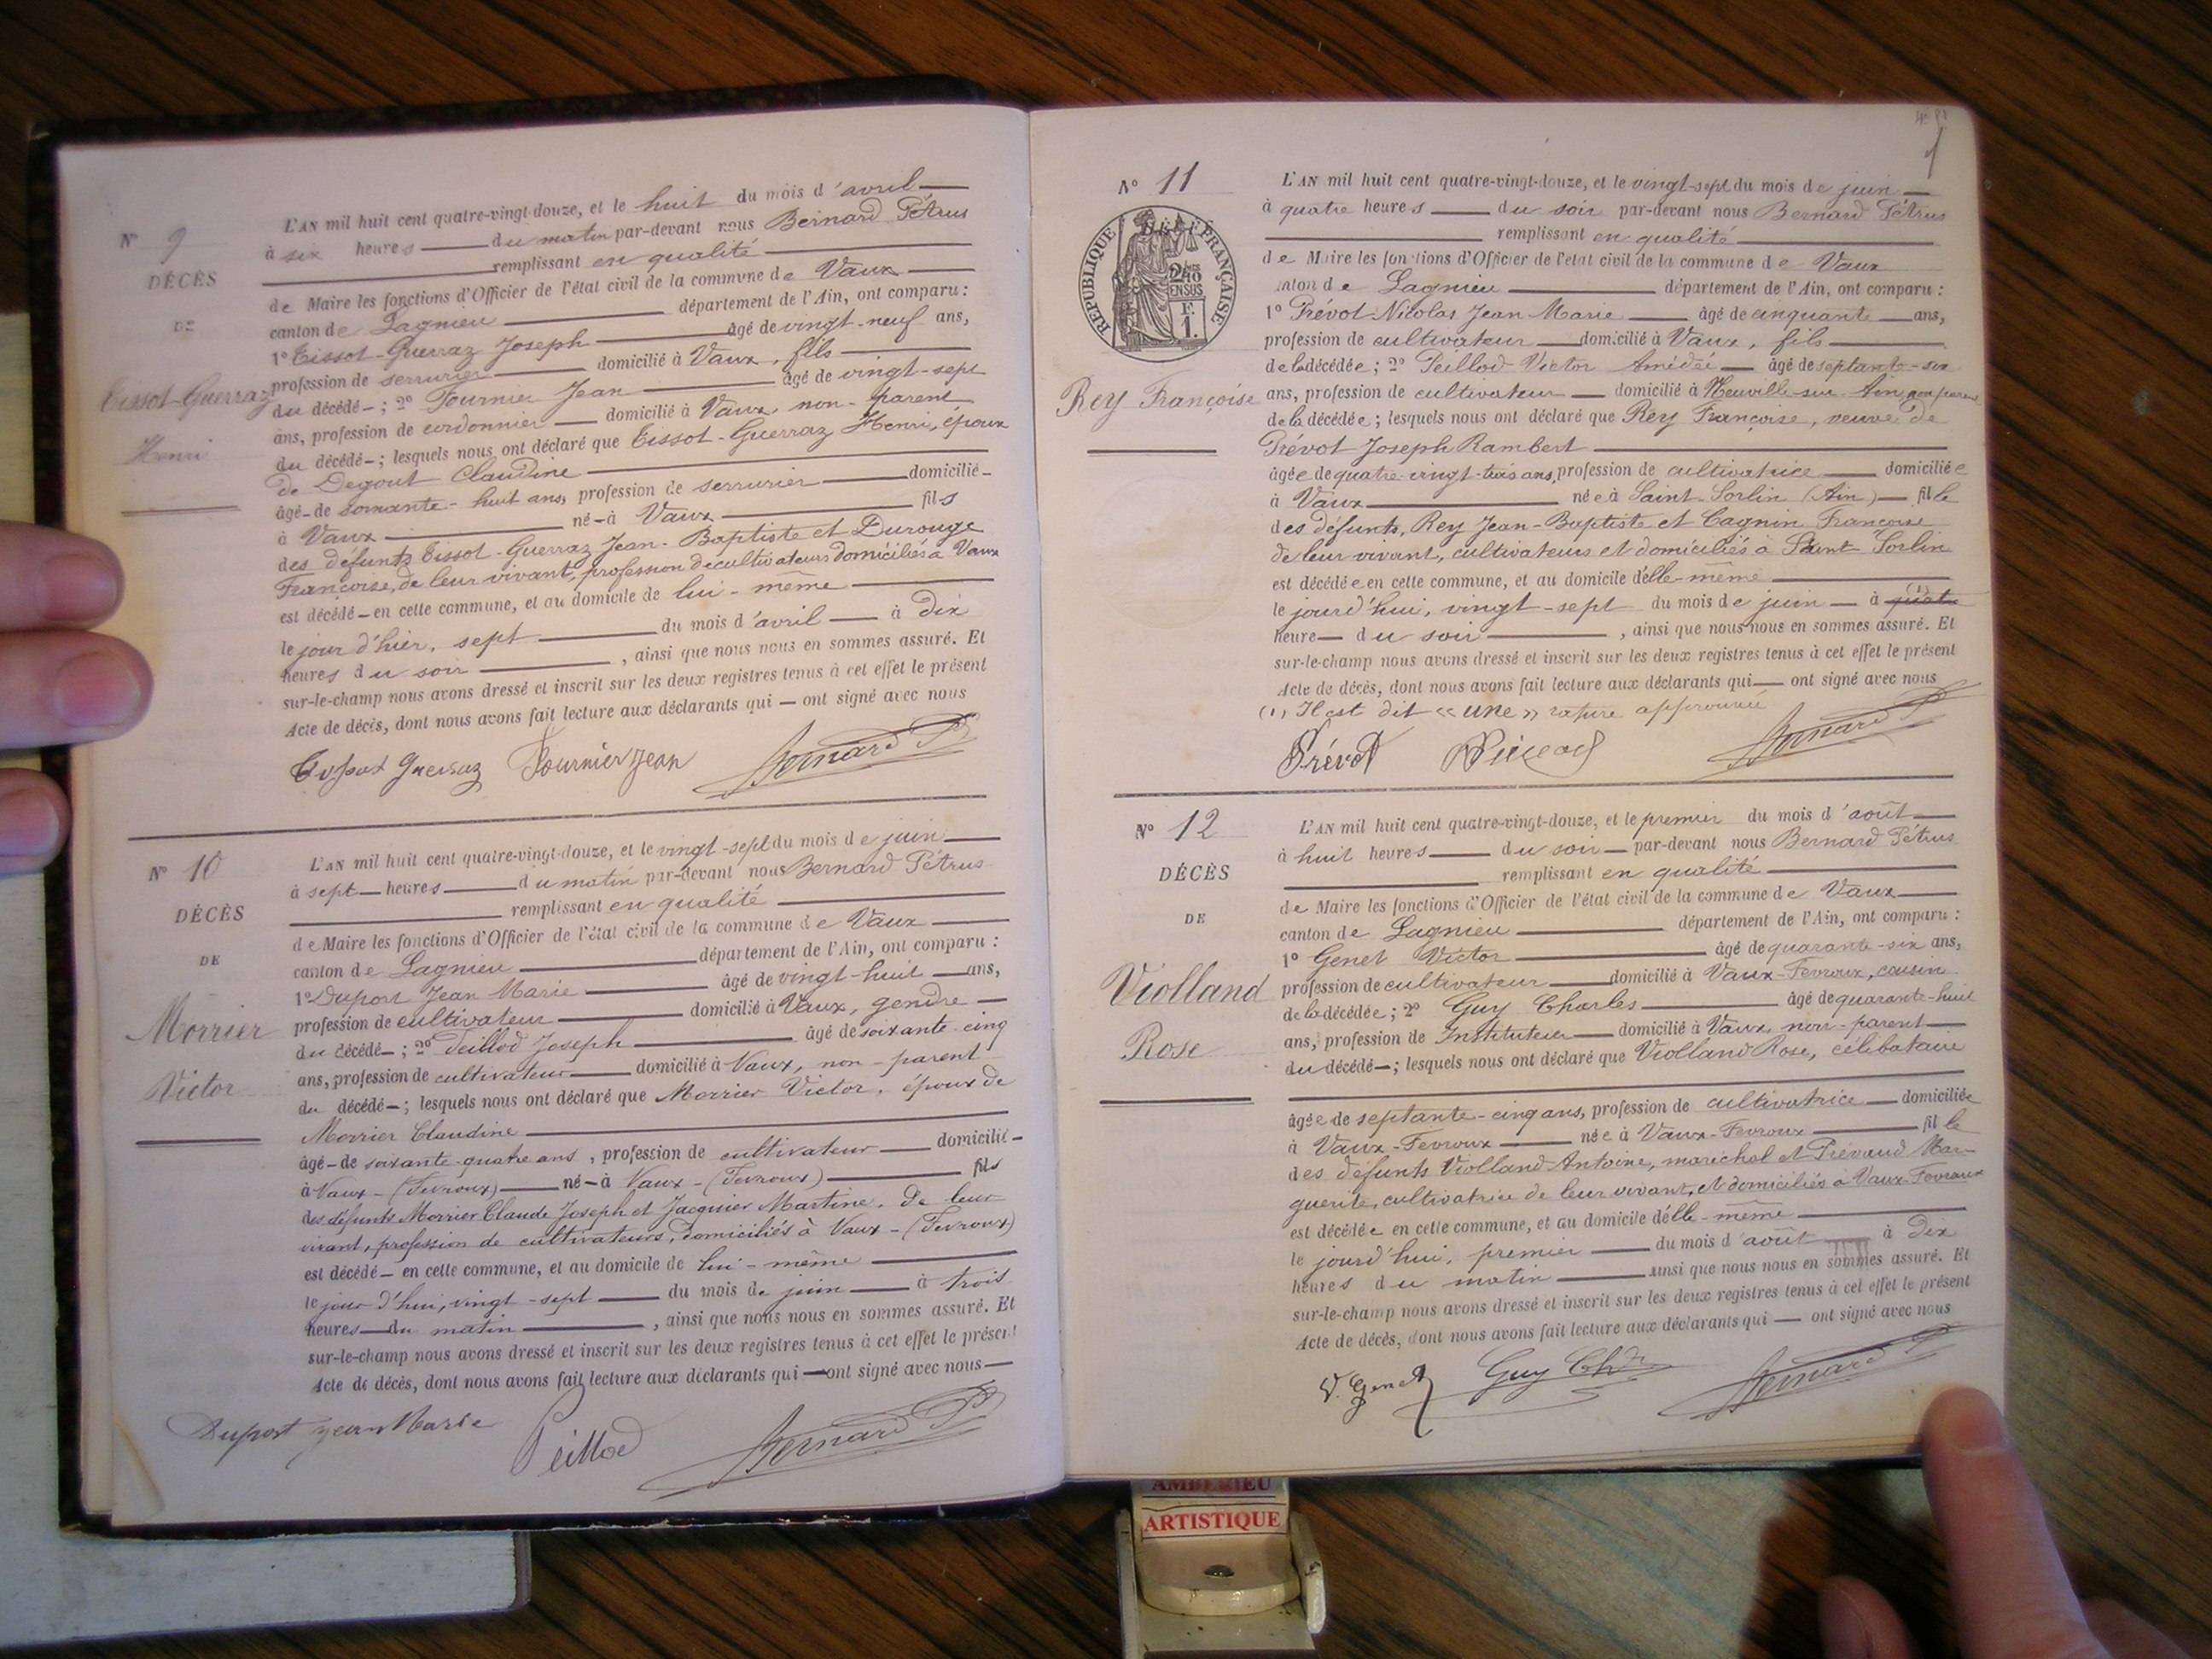 N° 9
DÉCÈS
DE
Tissot-Guerraz
Henri
L'AN mil huit cent quatre-vingt-douze, et le huit du mois d'avril
à six heures du matin par-devant nous Bernard Pétrus
remplissant en qualité
de Maire les fonctions d'Officier de l'état civil de la commune de Vaux
canton de Lagnieu département de l'Ain, ont comparu :
1° Tissot-Guerraz Joseph âgé de vingt-neuf ans,
profession de serrurier domicilié à Vaux, fils
du décédé ; 2° Fournier Jean âgé de vingt-sept
ans, profession de cordonnier domicilié à Vaux, non-parent
du décédé ; lesquels nous ont déclaré que Tissot-Guerraz Henri, époux
de Degout Claudine
âgé de soixante-huit ans, profession de serrurier domicilié
à Vaux né à Vaux fils
des défunts Tissot-Guerraz Jean-Baptiste et Durouge
Françoise, de leur vivant, profession de cultivateurs domiciliés à Vaux
est décédé en cette commune, et au domicile de lui-même
le jour d'hier, sept du mois d'avril à dix
heures du soir, ainsi que nous nous en sommes assuré. Et
sur-le-champ nous avons dressé et inscrit sur les deux registres tenus à cet effet le présent
Acte de décès, dont nous avons fait lecture aux déclarants qui ont signé avec nous
Tissot Guerraz Fournier Jean Bernard P
N° 10
DÉCÈS
DE
Morrier
Victor
L'AN mil huit cent quatre-vingt-douze, et le vingt-sept du mois de juin
à sept heures du matin par-devant nous Bernard Pétrus
remplissant en qualité
de Maire les fonctions d'Officier de l'état civil de la commune de Vaux
canton de Lagnieu département de l'Ain, ont comparu :
1° Duport Jean Marie âgé de vingt-huit ans,
profession de cultivateur domicilié à Vaux, gendre
du décédé ; 2° Peillod Joseph âgé de soixante-cinq
ans, profession de cultivateur domicilié à Vaux, non-parent
du décédé ; lesquels nous ont déclaré que Morrier Victor, époux de
Morrier Claudine
âgé de soixante-quatre ans, profession de cultivateur domicilié
à Vaux-(Fevroux) né à Vaux-(Fevroux) fils
des défunts Morrier Claude Joseph et Jacquier Martine, de leur
vivant, profession de cultivateurs, domiciliés à Vaux-(Fevroux)
est décédé en cette commune, et au domicile de lui-même
le jour d'hui, vingt-sept du mois de juin à trois
heures du matin, ainsi que nous nous en sommes assuré. Et
sur-le-champ nous avons dressé et inscrit sur les deux registres tenus à cet effet le présent
Acte de décès, dont nous avons fait lecture aux déclarants qui ont signé avec nous
Duport jean Marie Peillod Bernard P
N° 11
RÉPUBLIQUE FRANÇAISE
Rey Françoise
L'AN mil huit cent quatre-vingt-douze, et le vingt-sept du mois de juin
à quatre heures du soir par-devant nous Bernard Pétrus
remplissant en qualité
de Maire les fonctions d'Officier de l'état civil de la commune de Vaux
canton de Lagnieu département de l'Ain, ont comparu :
1° Prévot-Nicolas Jean Marie âgé de cinquante ans,
profession de cultivateur domicilié à Vaux, fils
de la décédée ; 2° Peillod Victor Amédée âgé de septante-six
ans, profession de cultivateur domicilié à Neuville-sur-Ain, non parent
de la décédée ; lesquels nous ont déclaré que Rey Françoise, veuve de
Prévot Joseph Rambert
âgée de quatre-vingt-trois ans, profession de cultivatrice domiciliée
à Vaux née à Saint-Sorlin (Ain) fille
des défunts, Rey Jean-Baptiste et Cagnin Françoise
de leur vivant, cultivateurs et domiciliés à Saint-Sorlin
est décédée en cette commune, et au domicile d'elle-même
le jourd'hui, vingt-sept du mois de juin à quatre (1)
heure du soir, ainsi que nous nous en sommes assuré. Et
sur-le-champ nous avons dressé et inscrit sur les deux registres tenus à cet effet le présent
Acte de décès, dont nous avons fait lecture aux déclarants qui ont signé avec nous
(1) Il est dit « une » rature approuvée
Prévot Bernard P
N° 12
DÉCÈS
DE
Violland
Rose
L'AN mil huit cent quatre-vingt-douze, et le premier du mois d'août
à huit heures du soir par-devant nous Bernard Pétrus
remplissant en qualité
de Maire les fonctions d'Officier de l'état civil de la commune de Vaux
canton de Lagnieu département de l'Ain, ont comparu :
1° Genet Victor âgé de quarante-six ans,
profession de cultivateur domicilié à Vaux-Fevroux, cousin
de la décédée ; 2° Guy Charles âgé de quarante-huit
ans, profession de Instituteur domicilié à Vaux, non-parent
du décédé ; lesquels nous ont déclaré que Violland Rose, célibataire
âgée de septante-cinq ans, profession de cultivatrice domiciliée
à Vaux-Fevroux née à Vaux-Fevroux fille
des défunts Violland Antoine, maréchal et Prévaud Mar-
guerite, cultivatrice de leur vivant, et domiciliés à Vaux-Fevroux
est décédée en cette commune, et au domicile d'elle-même
le jourd'hui, premier du mois d'août à dix
heures du matin ainsi que nous nous en sommes assuré. Et
sur-le-champ nous avons dressé et inscrit sur les deux registres tenus à cet effet le présent
Acte de décès, dont nous avons fait lecture aux déclarants qui ont signé avec nous
V. Genet Guy Ch Bernard P
AMBERIEU
ARTISTIQUE